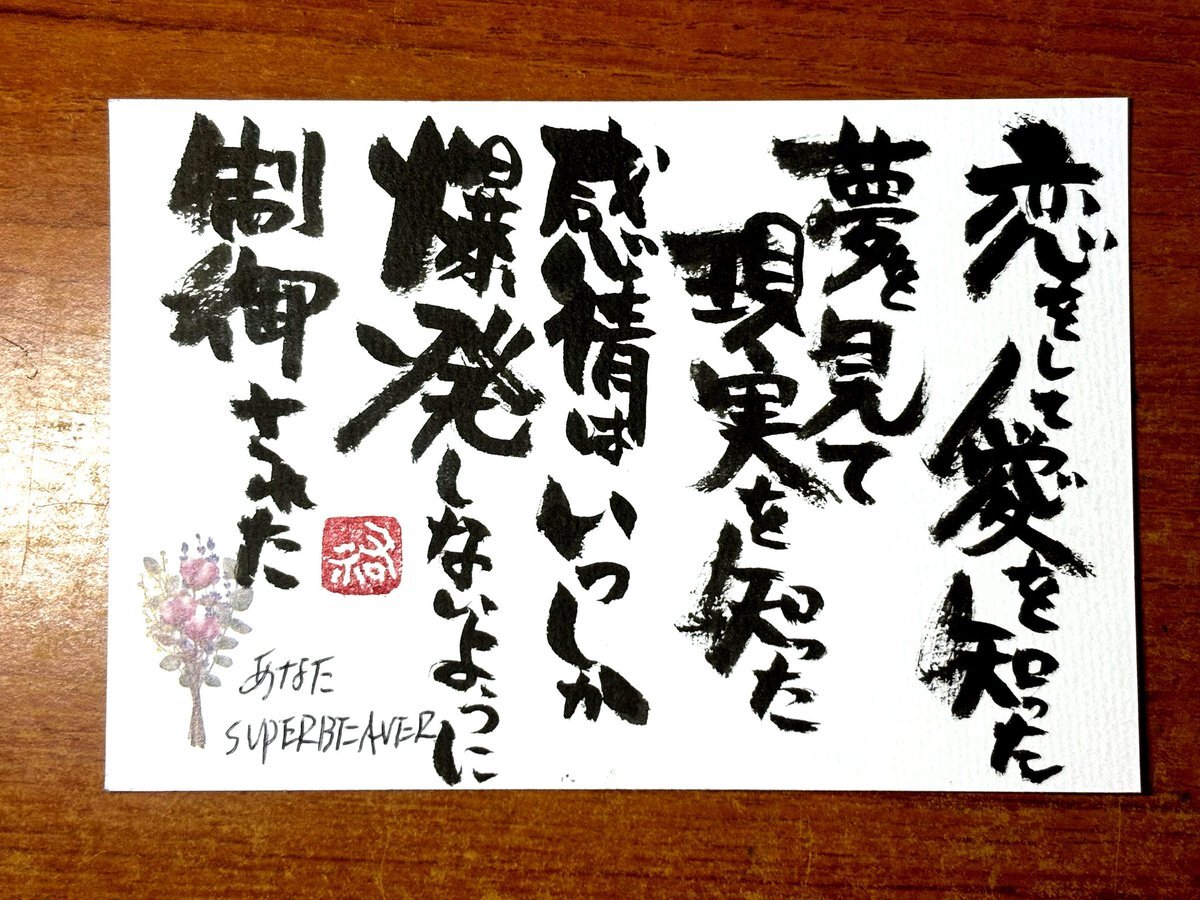 恋をして愛を知った
夢を見て
現実を知った
感情はいつしか
爆発しないように
制御された
あなた
SUPERBEAVER